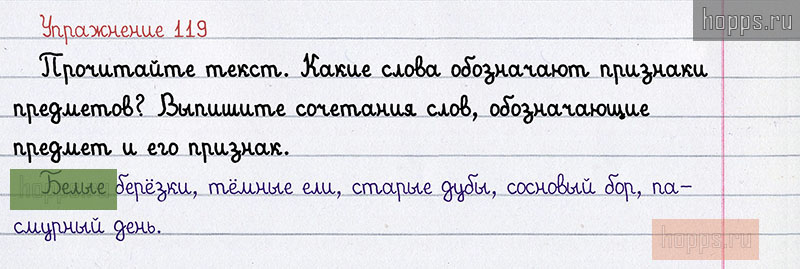 Упражнение 119
hopps.ru
Прочитайте текст. Какие слова обозначают признаки
предметов? Выпишите сочетания слов, обозначающие
предмет и его признак.
Белые берёзки, тёмные ели, старые дубы, сосновый бор, па-
смурный день.
hopps.ru